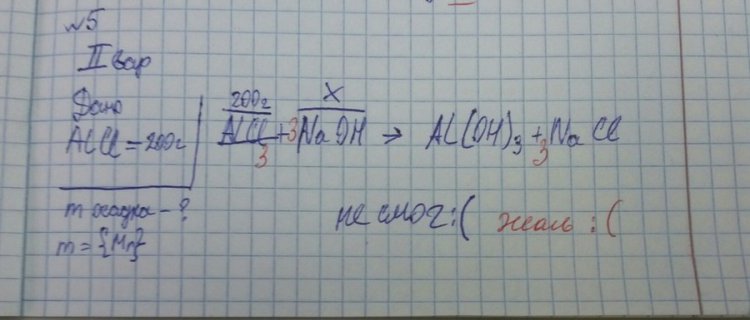 №5
II вар
Дано
AlCl = 200г
m осадка - ?
m = {Mr}
200г X
AlCl3 + 3NaOH → Al(OH)3 + 3NaCl
не смог :( жаль :(